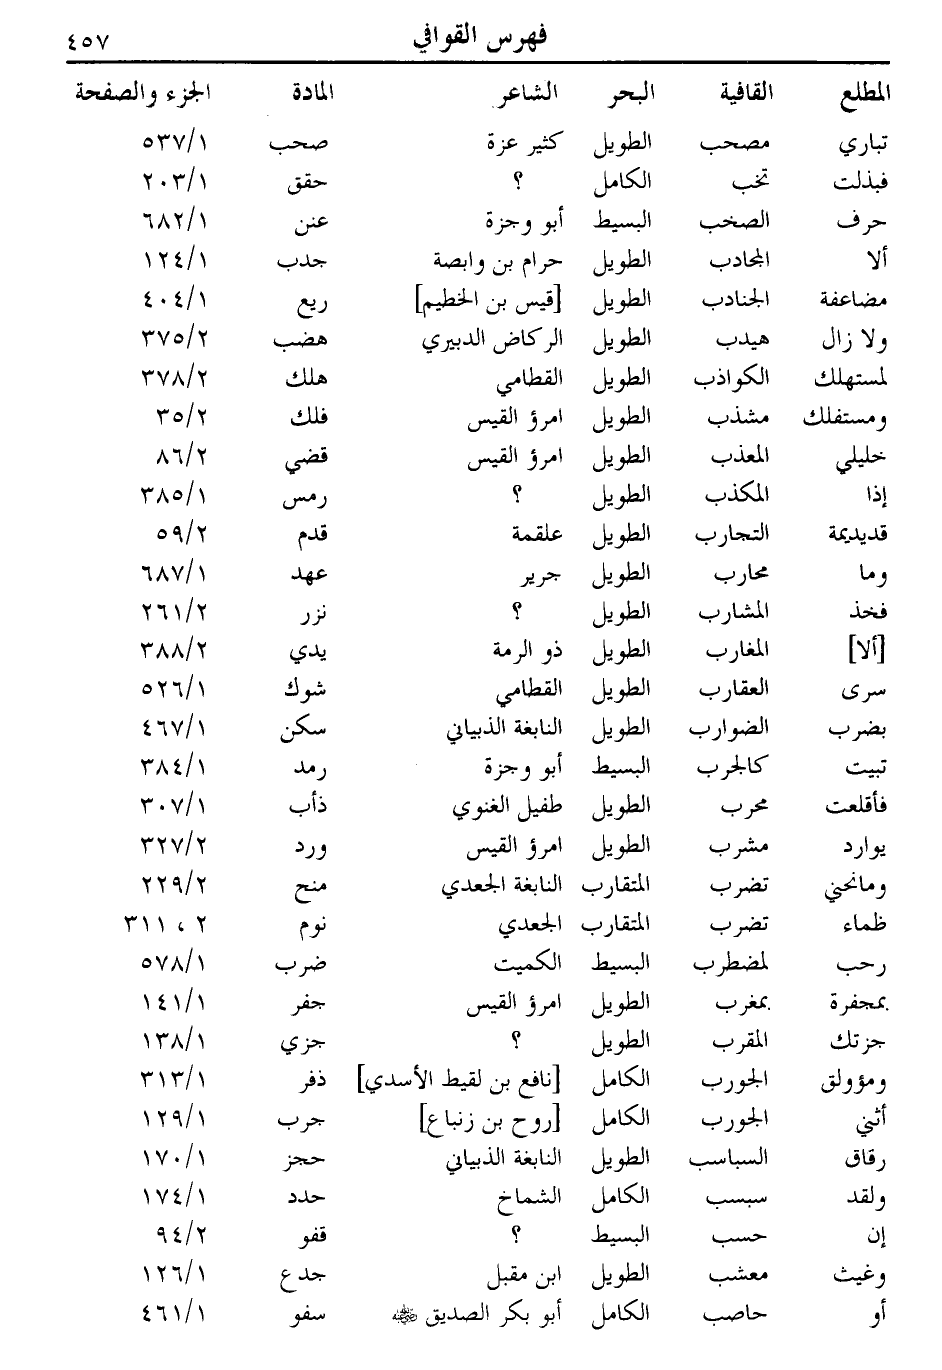 فهرس القوافي ٤٥٧
المطلع القافية البحر الشاعر المادة الجزء والصفحة
تباري مصحب الطويل كثير عزة صحب ٥٣٧/١
فبذلت تخب الكامل ؟ حقق ٢٠٣/١
حرف الصخب البسيط أبو وجزة عنن ٦٨٢/١
ألا المجادب الطويل حرام بن وابصة جدب ١٢٤/١
مضاعفة الجنادب الطويل [قيس بن الخطيم] ريع ٤٠٤/١
ولا زال هيدب الطويل الركاض الدبيري هضب ٣٧٥/٢
لمستهلك الكواذب الطويل القطامي هلك ٣٧٨/٢
ومستفلك مشذب الطويل امرؤ القيس فلك ٣٥/٢
خليلي المعذب الطويل امرؤ القيس قضي ٨٦/٢
إذا المكذب الطويل ؟ رمس ٣٨٥/١
قديديمة التجارب الطويل علقمة قدم ٥٩/٢
وما محارب الطويل جرير عهد ٦٨٧/١
فخذ المشارب الطويل ؟ نزر ٢٦١/٢
[ألا] المغارب الطويل ذو الرمة يدي ٣٨٨/٢
سرى العقارب الطويل القطامي شوك ٥٢٦/١
بضرب الضوارب الطويل النابغة الذبياني سكن ٤٦٧/١
تبيت كالجرب البسيط أبو وجزة رمد ٣٨٤/١
فأقلعت محرب الطويل طفيل الغنوي ذأب ٣٠٧/١
يوارد مشرب الطويل امرؤ القيس ورد ٣٢٧/٢
ومانحني تضرب المتقارب النابغة الجعدي منح ٢٢٩/٢
ظماء تضرب المتقارب الجعدي نوم ٢ ، ٣١١
رحب لمضطرب البسيط الكميت ضرب ٥٧٨/١
بمجفرة بمغرب الطويل امرؤ القيس جفر ١٤١/١
جزتك المقرب الطويل ؟ جزي ١٣٨/١
ومؤولق الجورب الكامل [نافع بن لقيط الأسدي] ذفر ٣١٣/١
أثني الجورب الكامل [روح بن زنباع] جرب ١٢٩/١
رقاق السباسب الطويل النابغة الذبياني حجز ١٧٠/١
ولقد سبسب الكامل الشماخ حدد ١٧٤/١
إن حسب البسيط ؟ قفو ٩٤/٢
وغيث معشب الطويل ابن مقبل جدع ١٢٦/١
أو حاصب الكامل أبو بكر الصديق رضي الله عنه سفو ٤٦١/١